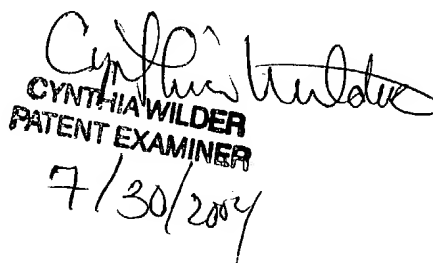 Cynthia Wilder
CYNTHIA WILDER
PATENT EXAMINER
7/30/2004